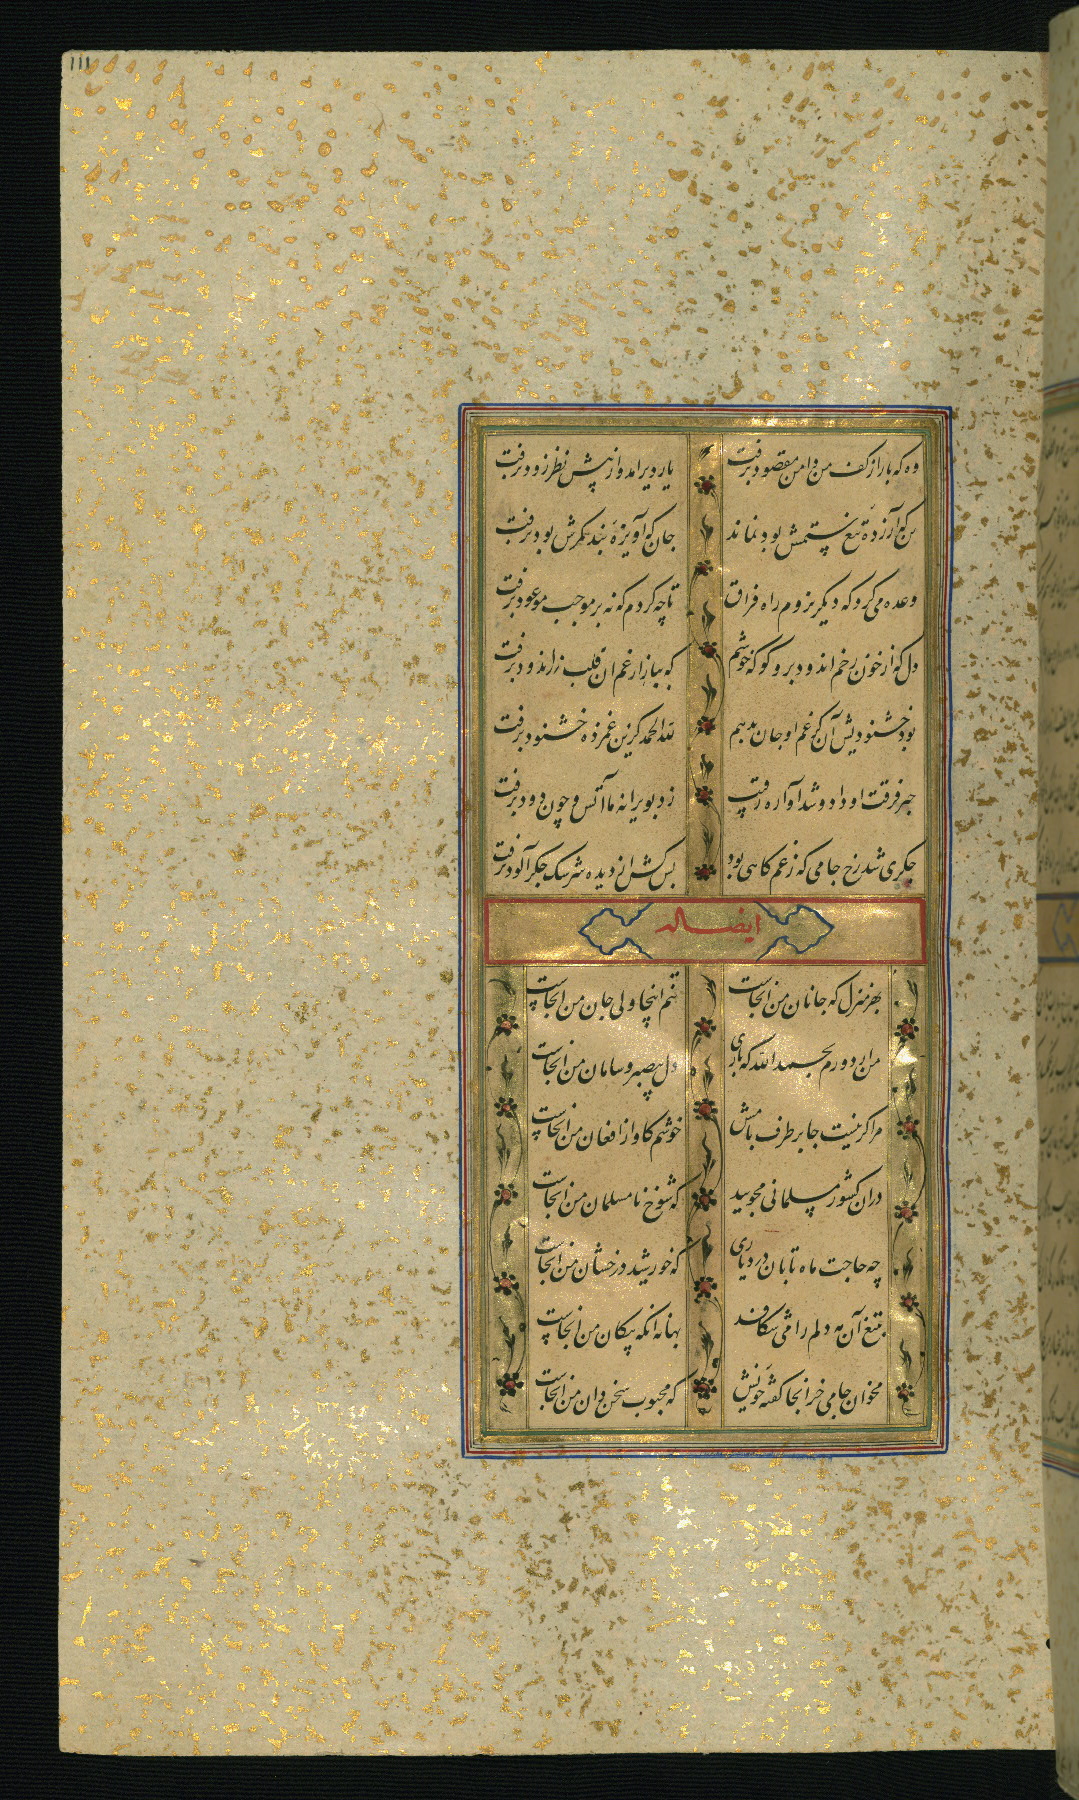 111
وه که باز از کف من دامن مقصود برفت
یار دیر آمد و از پیش نظر زود برفت
تن که آزردهٔ تیغ ستمش بود نماند
جان که آویزهٔ بند کمرش بود برفت
وعده می‌کرد که دیگر نروم راه فراق
تا چه کردم که نه بر موجب موعود برفت
دل کو از خون رخم اندود برو گو که خوشم
که ببازار غم آن قلب زراندود برفت
بود خشنودیش آن کز غم او جان بدهم
لله الحمد کزین غمزده خشنود برفت
خبر فرقت او داد و شد آواره رقیب
زد بویرانه ما آتش و چون دود برفت
جگری شد رخ جامی که ز غم کاهی بود
بس کش از دیده سرشک جگرآلود برفت
ایضا له
بهر منزل که جانان من آنجاست
تنم اینجا ولی جان من آنجاست
من ار دورم بحمد الله که باری
دل بیصبر و سامان من آنجاست
مرا گر نیست جا بر طرف بامش
خوشم کاواز افغان من آنجاست
در آن کشور مسلمانی مجویید
که شوخ نامسلمان من آنجاست
چه حاجت ماه تابان در دیاری
که خورشید درخشان من آنجاست
بتیغ آن مه دلم را می شکافد
بهانه آنکه پیکان من آنجاست
مخوان جامی خر آنجا گفته خویش
که محبوب سخن دان من آنجاست